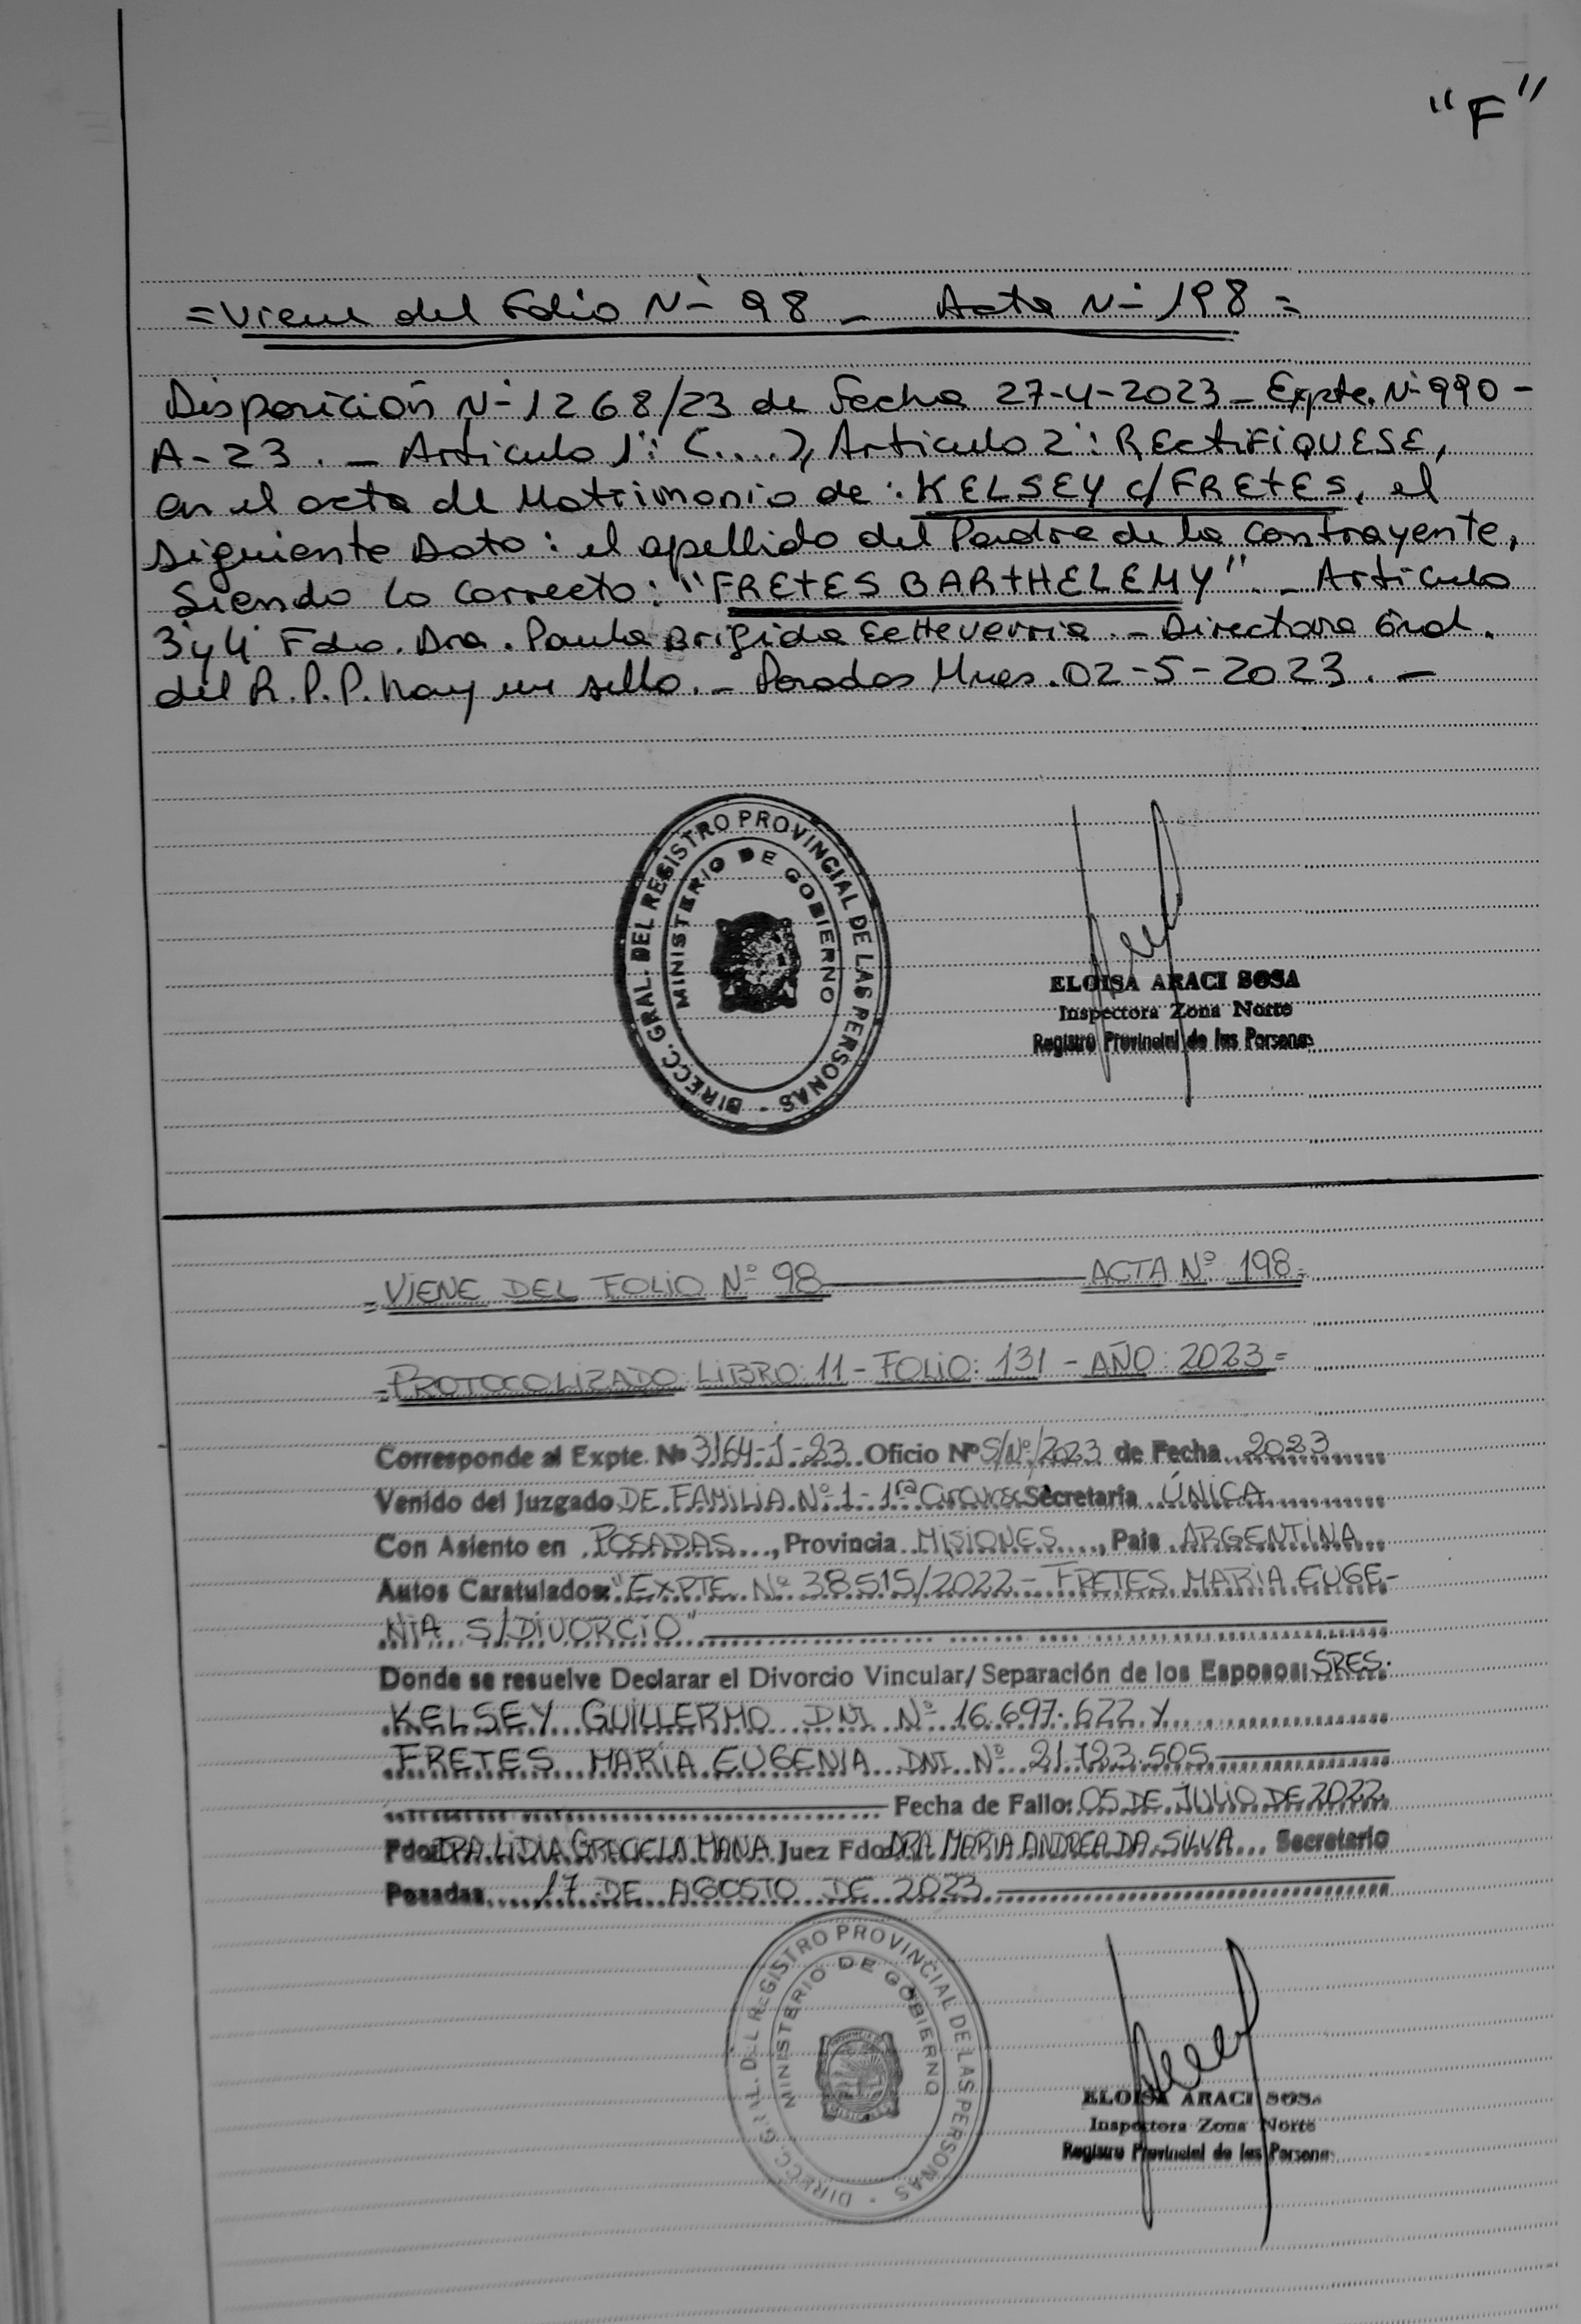 "F"
= Viene del Folio Nº 98 _ Acta Nº 198 =
Disposición Nº 1268/23 de Fecha 27-4-2023 _ Expte. Nº 990 -
A-23. _ Artículo 1º: (....), Artículo 2º: RECTIFIQUESE,
en el acta de Matrimonio de: KELSEY c/ FRETES, el
siguiente Dato: el apellido del Padre de la contrayente,
Siendo lo Correcto: "FRETES BARTHELEMY". _ Artículo
3º y 4º Fdo. Dra. Paula Brigida Echeverria. _ Directora Gral.
del R.P.P. hay un sello. _ Posadas Mnes. 02-5-2023. _
DIRECC. GRAL. DEL REGISTRO PROVINCIAL DE LAS PERSONAS -
MINISTERIO DE GOBIERNO
ELOISA ARACI SOSA
Inspectora Zona Norte
Registro Provincial de las Personas
= VIENE DEL FOLIO Nº 98 ACTA Nº 198 =
= PROTOCOLIZADO: LIBRO: 11 - FOLIO: 131 - AÑO: 2023 =
Corresponde al Expte. Nº 3164-J-23 Oficio Nº S/Nº/2023 de Fecha 2023
Venido del Juzgado DE FAMILIA Nº 1 - 1ra Circunsc. Secretaría ÚNICA
Con Asiento en POSADAS, Provincia MISIONES, Pais ARGENTINA
Autos Caratulados: "EXPTE. Nº 38515/2022 - FRETES MARIA EUGE-
NIA S/DIVORCIO"
Donde se resuelve Declarar el Divorcio Vincular/ Separación de los Esposos: SRES.
KELSEY GUILLERMO DNI Nº 16.697.622 Y
FRETES MARÍA EUGENIA DNI Nº 21.723.505
Fecha de Fallo: 05 DE JULIO DE 2022
Fdo: DRA LIDIA GRACIELA MANA Juez Fdo: DRA MARIA ANDREA DA SILVA Secretario
Posadas 17 DE AGOSTO DE 2023
DIRECC. GRAL. DEL REGISTRO PROVINCIAL DE LAS PERSONAS -
MINISTERIO DE GOBIERNO
ELOISA ARACI SOSA
Inspectora Zona Norte
Registro Provincial de las Personas